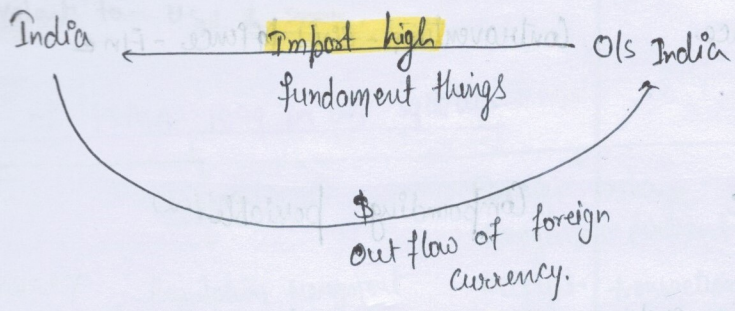 India Import high O/s India
fundament things
$
Out flow of foreign
currency.